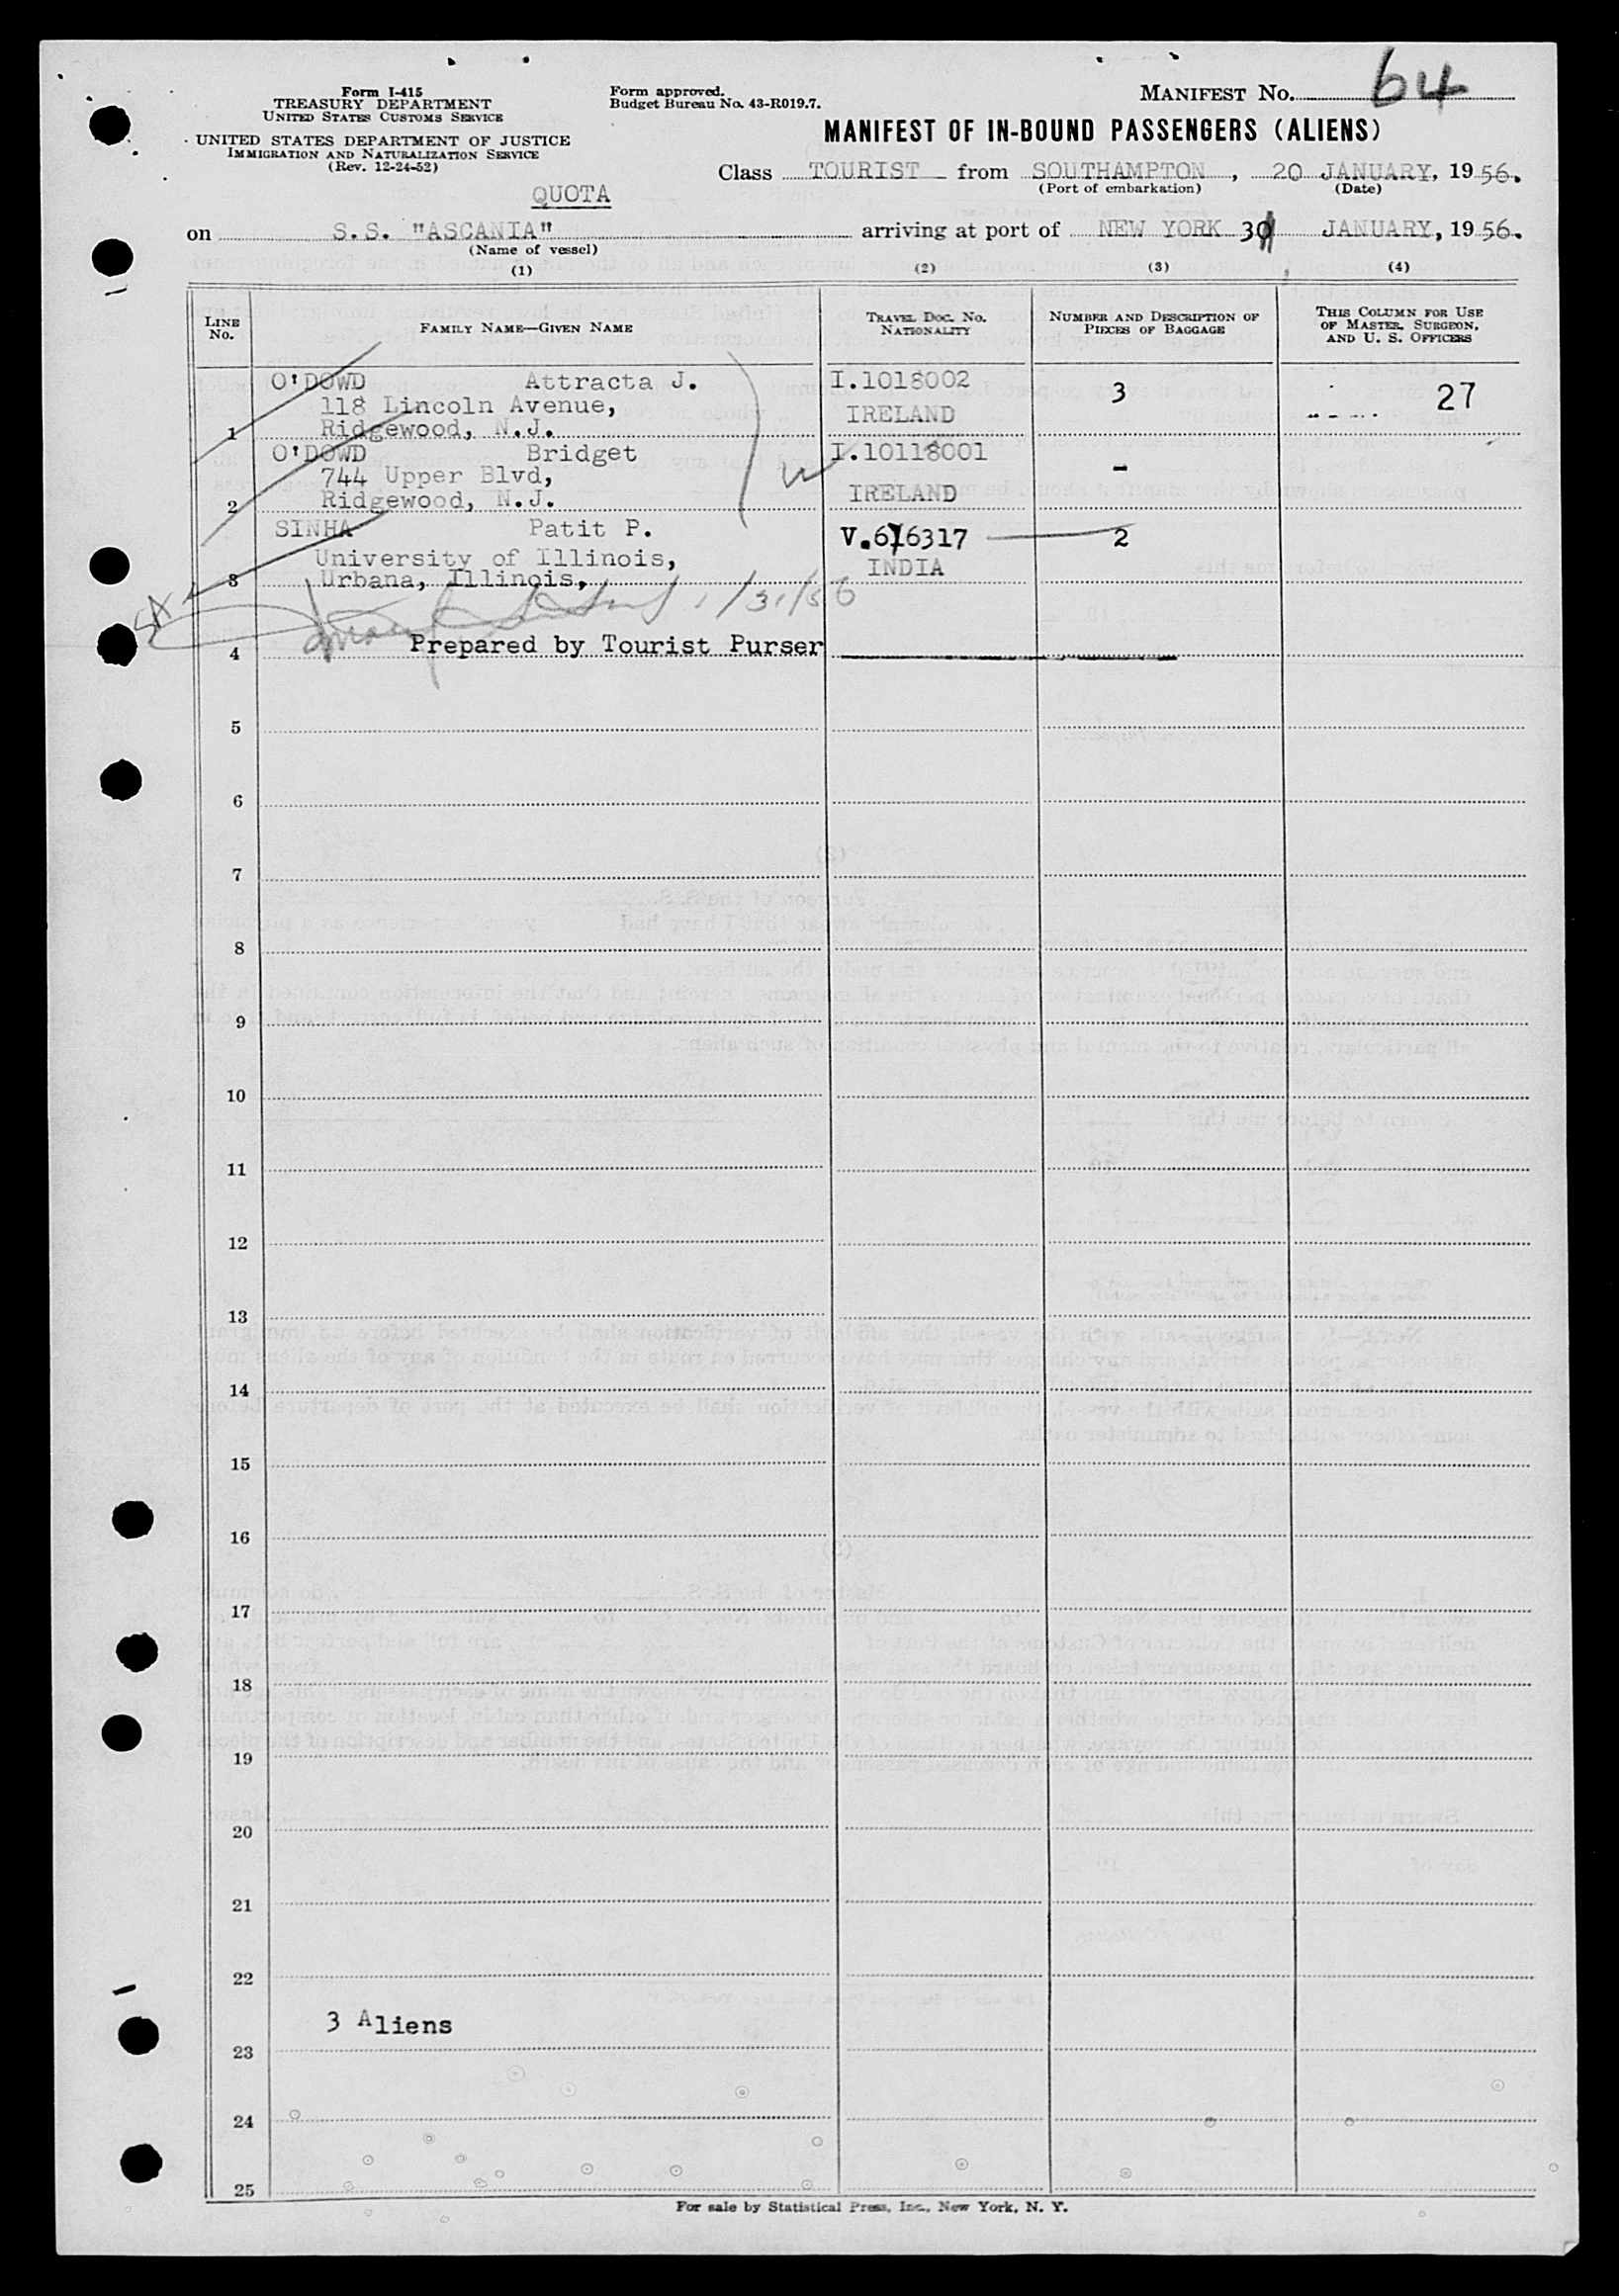 Form I-415
TREASURY DEPARTMENT
UNITED STATES CUSTOMS SERVICE
UNITED STATES DEPARTMENT OF JUSTICE
IMMIGRATION AND NATURALIZATION SERVICE
(Rev. 12-24-52)
Form approved.
Budget Bureau No. 43-R019.7.
MANIFEST No. 64
MANIFEST OF IN-BOUND PASSENGERS (ALIENS)
Class TOURIST from SOUTHAMPTON, 20 JANUARY, 1956.
(Port of embarkation) (Date)
QUOTA
on S.S. "ASCANIA" arriving at port of NEW YORK 31 JANUARY, 1956.
(Name of vessel)
(1) (2) (3) (4)
LINE No. FAMILY NAME—GIVEN NAME TRAVEL DOC. No. NATIONALITY NUMBER AND DESCRIPTION OF PIECES OF BAGGAGE THIS COLUMN FOR USE OF MASTER, SURGEON, AND U. S. OFFICERS
O'DOWD Attracta J. I.1018002 3 27
118 Lincoln Avenue, IRELAND
1 Ridgewood, N.J.
O'DOWD Bridget I.10118001 -
744 Upper Blvd, IRELAND
2 Ridgewood, N.J.
SINHA Patit P. V.676317 2
University of Illinois, INDIA
3 Urbana, Illinois,
1/31/56
4 Prepared by Tourist Purser
5
6
7
8
9
10
11
12
13
14
15
16
17
18
19
20
21
22
3 Aliens
23
24
25
For sale by Statistical Press, Inc., New York, N. Y.